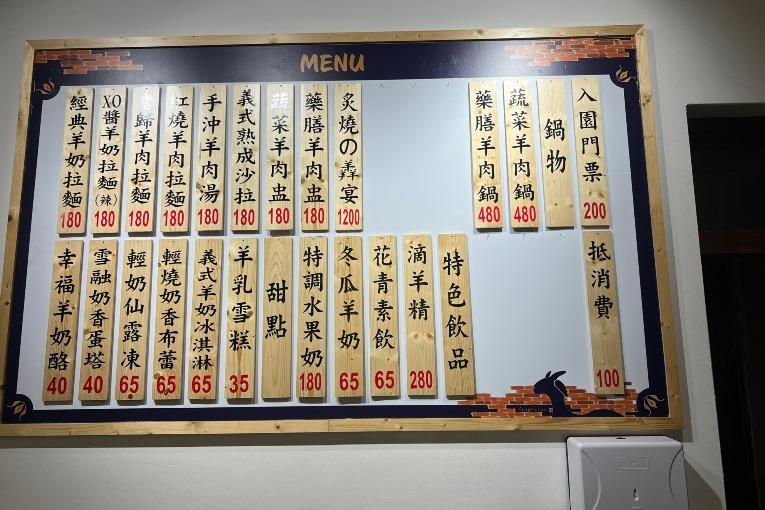 MENU
入園門票 200
鍋物
蔬菜羊肉鍋 480
藥膳羊肉鍋 480
炙燒の羴宴 1200
藥膳羊肉盅 180
蔬菜羊肉盅 180
義式熟成沙拉 180
手沖羊肉湯 180
紅燒羊肉拉麵 180
當歸羊肉拉麵 180
XO醬羊奶拉麵(辣) 180
經典羊奶拉麵 180
抵消費 100
特色飲品
滴羊精 280
花青素飲 65
冬瓜羊奶 65
特調水果奶 180
甜點
羊乳雪糕 35
義式羊奶冰淇淋 65
輕燒奶香布蕾 65
輕奶仙露凍 65
雪融奶香蛋塔 40
幸福羊奶酪 40